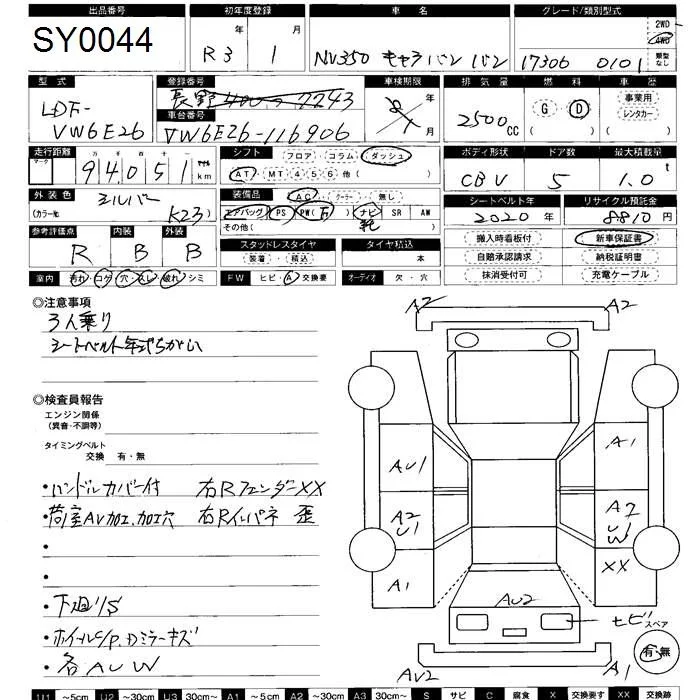 出品番号 初年度登録 車名 グレード/類別型式
SY0044 年 月 2WD
R3 1 NV350 キャラバン バン 4WD
17306 0101 類型なし
型式 登録番号 車検期限 排気量 燃料 車歴
LDF- 長野400 7743 年 G D 事業用
VW6E26 車台番号 2500cc レンタカー
VW6E26-116906 月 ( ) ( )
走行距離 シフト フロア コラム ダッシュ ボディ形状 ドア数 最大積載量
マーク 万 千 百 十 一 マイル t
94051 km AT MT 4 5 6 他( ) CBV 5 1.0
外装色 シルバー 装備品 AC クーラー 無し シートベルト年 リサイクル預託金
(カラーNo. K23) エアバッグ PS PW(下) ナビ SR AW 2020年 8810円
参考評価点 内装 外装 その他( ) 搬入時看板付 新車保証書
R B B スタッドレスタイヤ タイヤ積込 自賠承認請求 納税証明書
装着・積込 本 抹消受付可 充電ケーブル
室内 汚れ コゲ 穴 スレ 破れ シミ FW ヒビ A 交換要 オーディオ 欠・穴
◎注意事項
3人乗り
シートベルト年式ちがい
◎検査員報告
エンジン関係
(異音・不調等)
タイミングベルト
交換 有・無
・ハンドルカバー付 右RフェンダーXX
・荷室AV加工、加工穴 右Rインパネ 歪
・
・
・下廻りS
・ホイールC/P、Dミラーキズ
・各AUW
A2 A2
AU1 A1
A2 U1 A2 U W
A1 XX
AU2
ヒビ スペア
有・無
AU2 A1
U1 ~5cm U2 ~30cm U3 30cm~ A1 ~5cm A2 ~30cm A3 30cm~ S サビ C 腐食 X 交換要す XX 交換跡